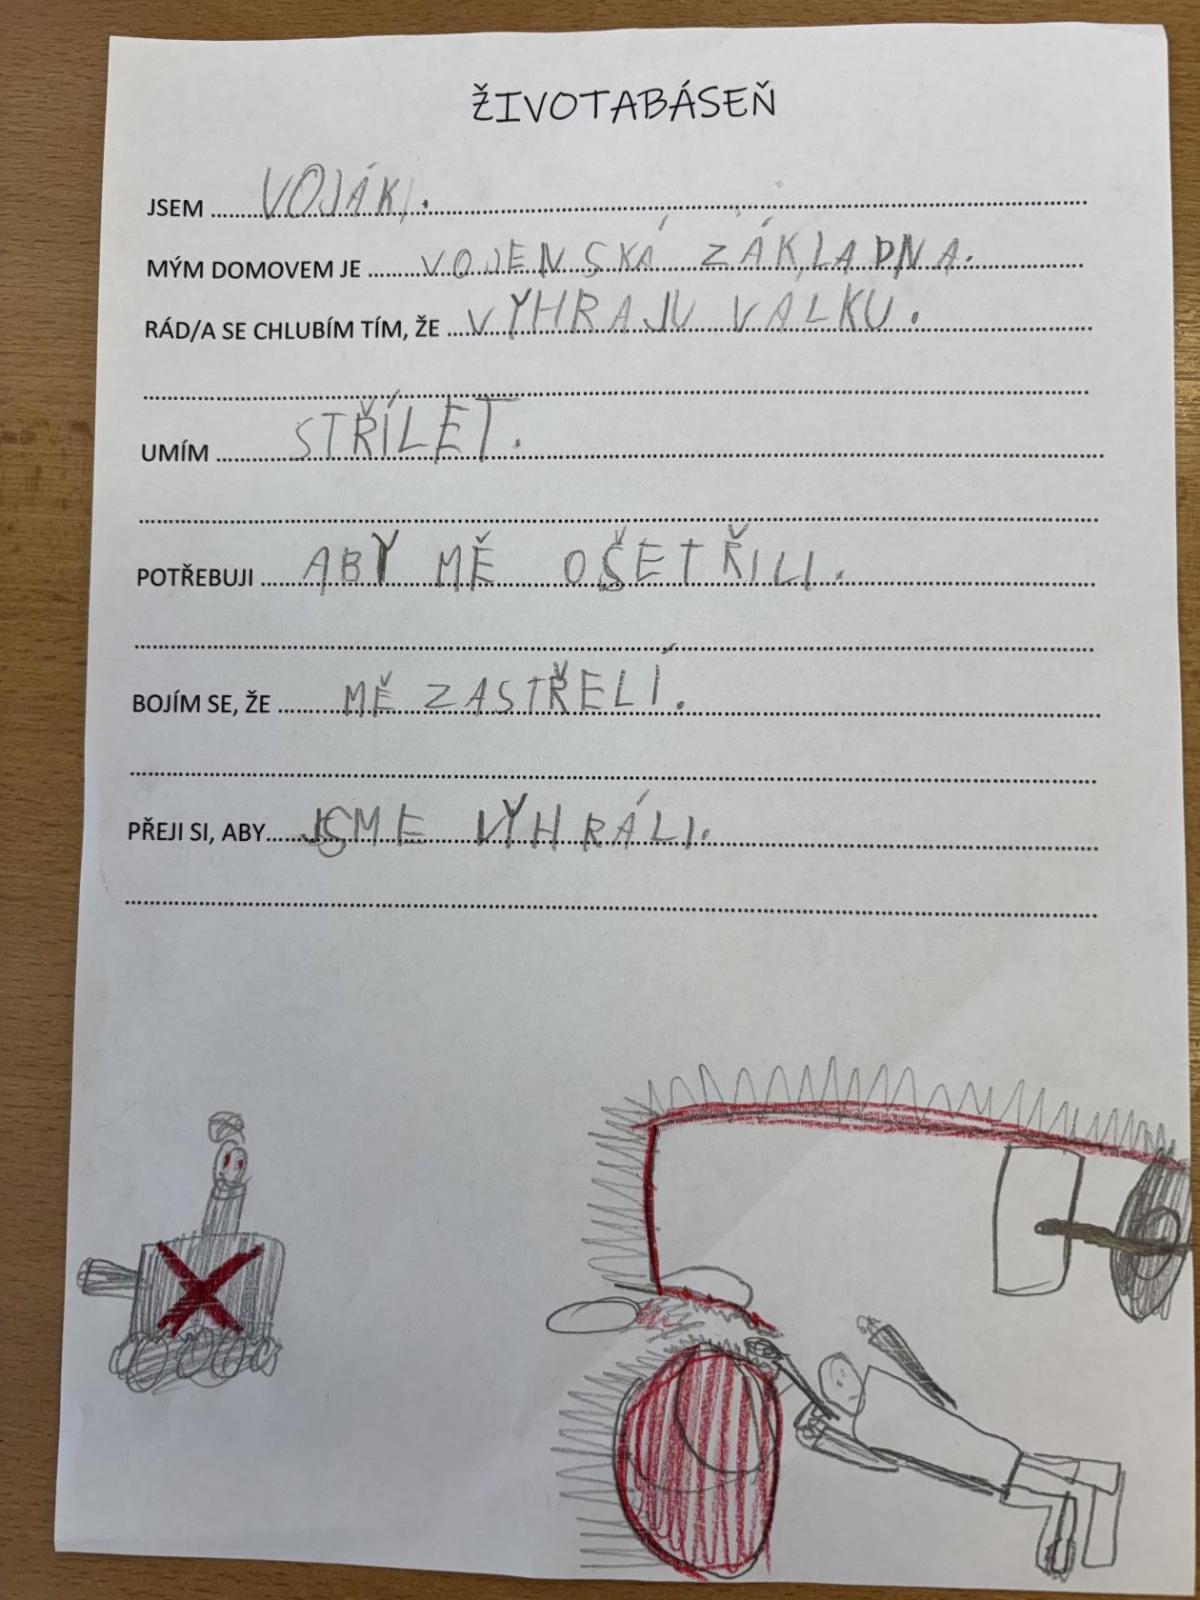 ŽIVOTABÁSEŇ
JSEM VOJÁK.
MÝM DOMOVEM JE VOJENSKÁ ZÁKLADNA.
RÁD/A SE CHLUBÍM TÍM, ŽE VYHRAJU VALKU.
UMÍM STŘÍLET.
POTŘEBUJI ABY MĚ OŠETŘILI.
BOJÍM SE, ŽE MĚ ZASTŘELÍ.
PŘEJI SI, ABY JSME VYHRÁLI.